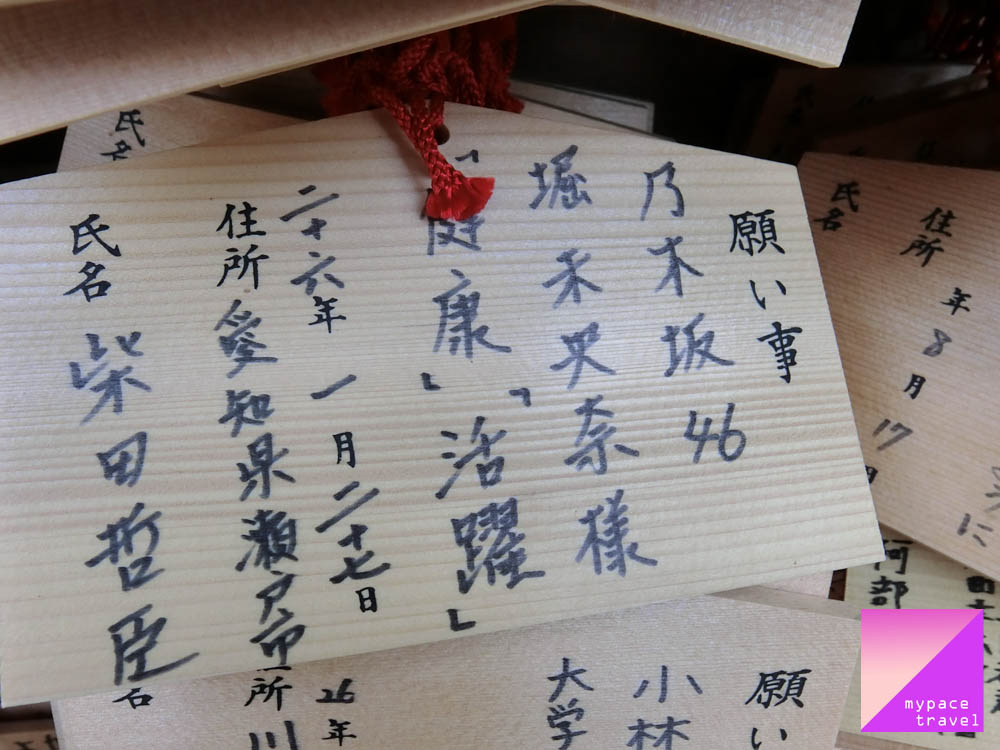 願い事
乃木坂46
堀未央奈様
「健康」「活躍」
二十六年 一月二十七日
住所 愛知県瀬戸市
氏名 柴田哲臣
氏名
住所
年8月17
に
氏名
阿部
願い
小林
大学
26年
所 川
名
mypace
travel